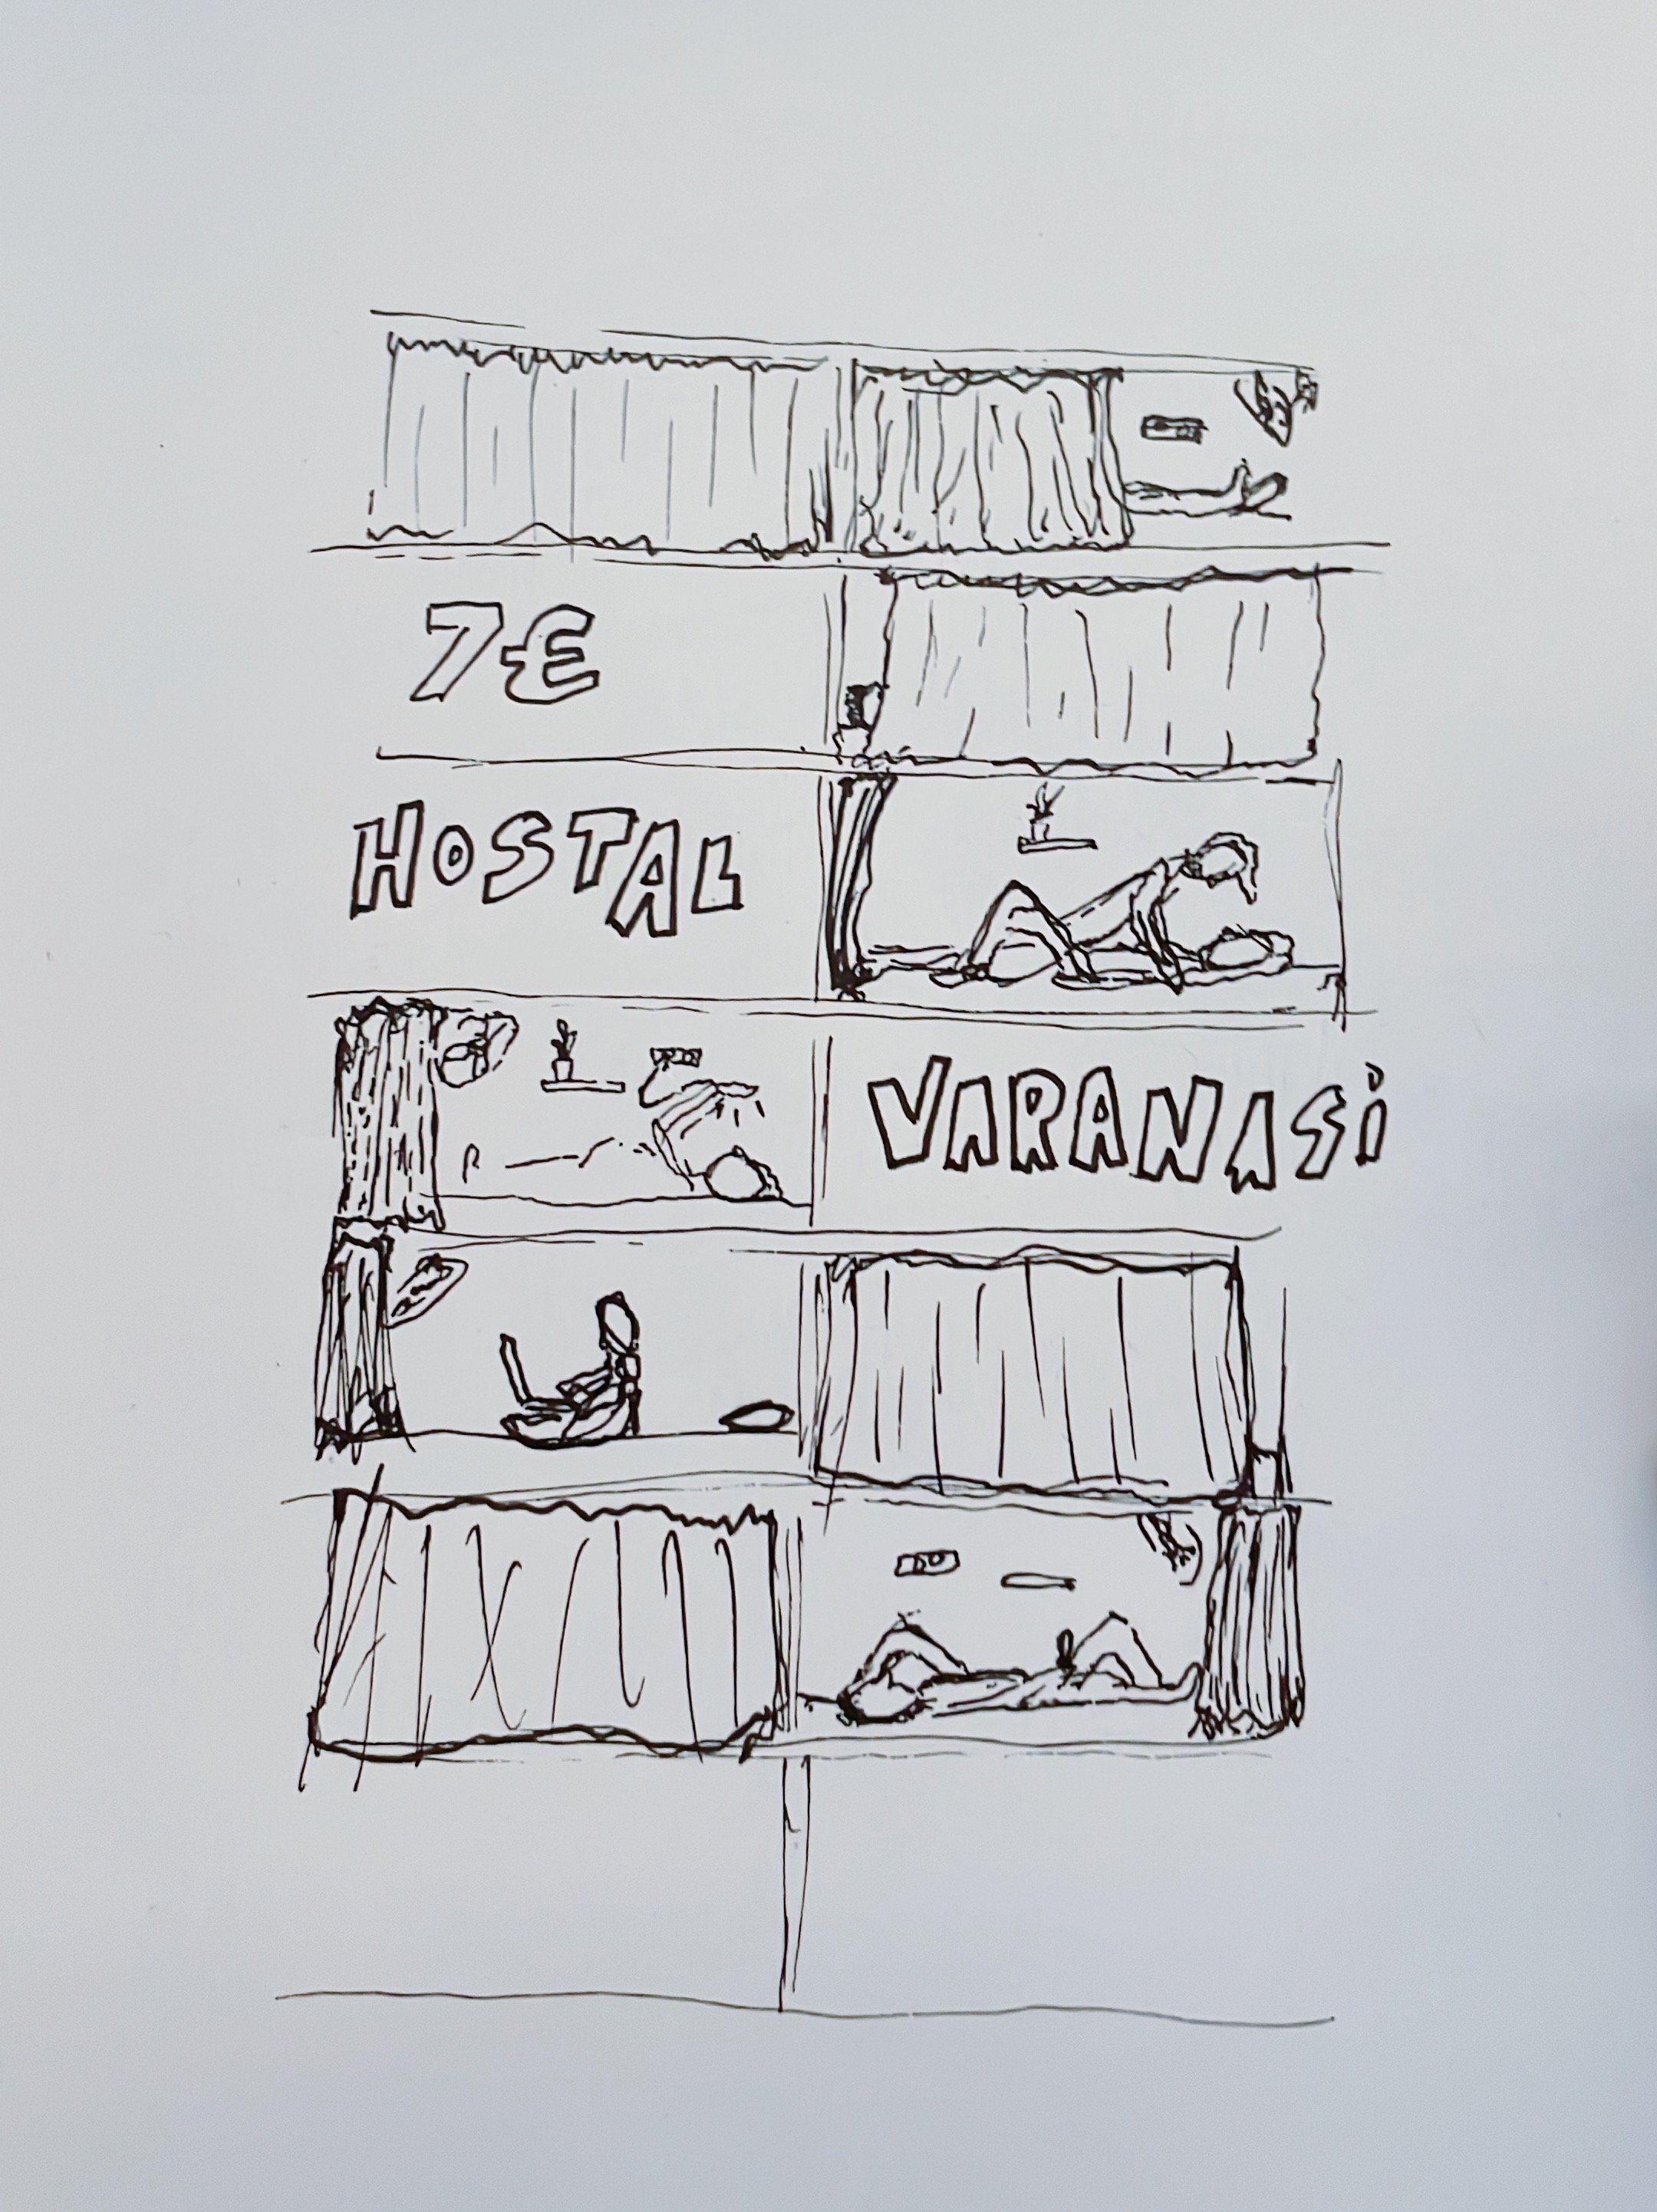 7€
HOSTAL
VARANASi